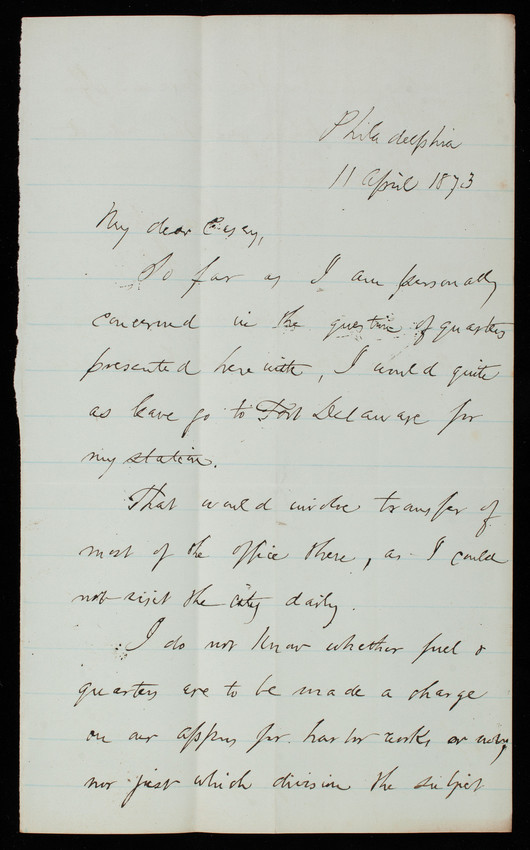 Philadelphia
11 April 1873
My dear Casey,
So far as I am personally
concerned in the question of quarters
presented herewith, I would quite
as leave go to Fort Delaware for
my station.
That would involve transfer of
most of the office there, as I could
not visit the city daily.
I do not know whether fuel &
quarters are to be made a charge
on our apprns for harbor works or not,
nor just which division the subject